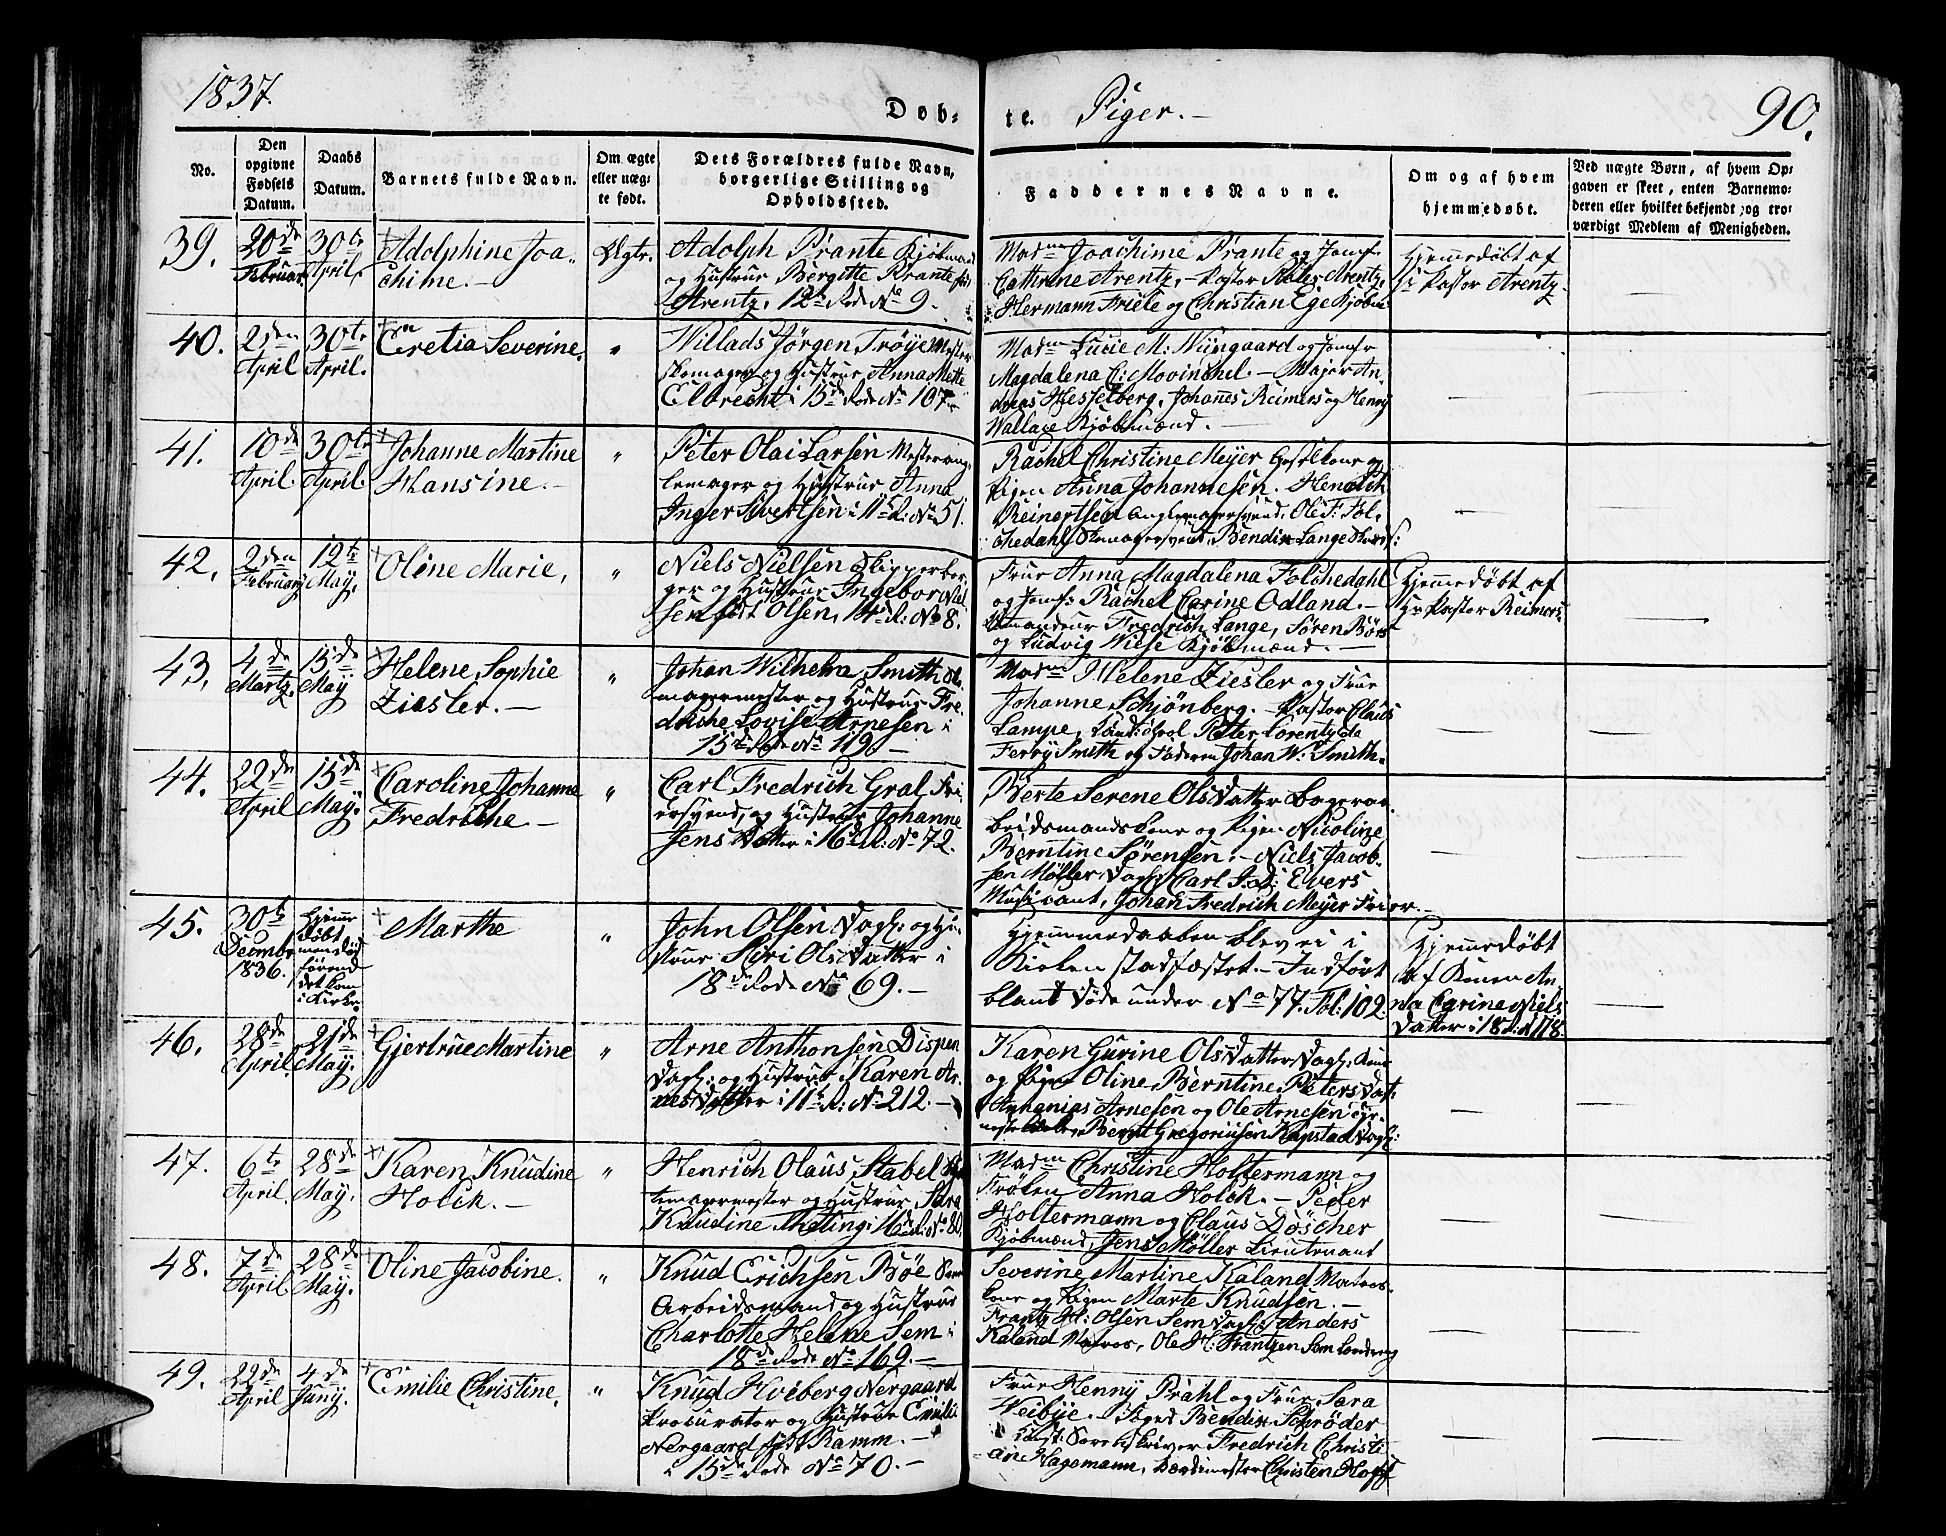 1837.
Døb-
te.
Piger. -
90.
No.
Den opgivne Fødsels Datum.
Daabs Datum.
Barnets fulde Navn.
Om ægte eller uægte født.
Dets Forældres fulde Navn, borgerlige Stilling og Opholdssted.
Faddernes Navne.
Om og af hvem hjemmedøbt.
Ved uægte Børn, af hvem Opgaven er skeet, enten Barnemoderen eller hvilket bekjendt og troværdigt Medlem af Menigheden.
39.
20de Februar
30te April.
Adolphine Joa-
chime. -
Ægte.
Adolph Prante Kjøbmand
og Hustrue Bergitte Prante født
Arentz, 12te Rode No 9.
Madme Joachime Prante og Jomfr
Cathrine Arentz, - Pastor Arentz,
Hermann Friele og Christian Ege Kjøbm:
Hjemmedøbt af
Hr Pastor Arentz.
40.
2den April
30te April.
Gretia Severine.
"
Willads Jørgen Trøye Mester
skomager og Hustrue Anna Mette
Elbrecht i 15de Rode No 107.
Madme Lucie M: Wiingaard og Jomfr
Magdalena C: Movinchel. - Major An-
dreas Hesselberg, Johannes Reimers og Henry
Wallace Kjøbmænd. -
41.
10de April.
30te April.
Johanne Martine
Hansine. -
"
Peter Olai Larsen
og Hustrue Anna
Inger Sivertsen i 11te R: No 51.
Rachel Christine Meyer
Pigen Anna Johannesen. Henrich
Reinertsen Ole F: Fol-
chedahl Skomagersvend, Bendix Lange
42.
2den Februarij
12te Maij.
Oline Marie,
"
Niels Nielsen
og Hustrue Ingebor Niel-
sen født Olsen, R: No 8.
Frue Anna Magdalena Folchedahl
og Jomf: Rachel Carine Odland. -
Fredrich Lange, Søren Børs
og Ludvig Wiese Kjøbmænd. -
Hjemmedøbt af
Hr Pastor Reimers
43.
4de Martz.
15de Maij
Helene Sophie
Ziesler. -
"
Johan Wilhelm Smith
magermester og Hustrue Fre-
driche Lovise Arnesen i
15de Rode No 119. -
Madme Helene Ziesler og Frue
Johanne Schjønberg. - Pastor Claus
Lampe, Petter Lorentz da
Ferry Smith og Faderen Johan W: Smith.
44.
22de April
15de Maij.
Caroline Johanne
Fredriche -
"
Carl Fredrich Gral Fri-
ersvend, og Hustrue Johanne
Jens Datter i 16de R: No 72.
Berte Serene Ols Datter
beidsmands Kone og Pigen Nicoline
Berntine Sørensen. - Niels Jacob-
sen Møller Dagk: Carl Evers
Musicant, Johan Fredrich Meyer Frior. -
45.
30te Decembr 1836.
Hjemme døbt men død førend det kom i Kirke.
Marthe
"
John Olsen Dagk: og Hu-
strue Siri Ols Datter i
18de Rode No 69. -
Hjemmedaaben blev ei i
Kirken stadfæstet. - Indført
blant døde under No 77. Fol: 102.
Hjemmedøbt
af Konen An-
na Carine Niels
Datter i 18 R: N 118.
46.
28de April.
21de Maij.
Gjertrue Martine
"
Arne Anthonsen Dispen
Dagk: og Hustrue Karen Ar-
nes Datter i 11te R: No 212. -
Karen Gurine Ols Datter Dagk: Kone
og Pigen Oline Berntine Peters Dat:
Ananias Arnesen og Ole Arnesen
Berntt Gregoriusen Dagk:
47.
6te April.
28de Maij.
Karen Knudine
Holck. -
"
Henrich Olaus Stabel
magermester og Hustrue Sara
Knudine i 16de R: No
Madme Christine Holtermann og
Frøken Anna Holck. - Peder
Holtermann og Claus Döscher
Kjøbmænd, Jens Møller Lieutenant
48.
7de April
28de Maij.
Oline Jacobine.
"
Knud Erichsen Bøe
Arbeidsmand og Hustrue
Charlotte Helene Sem i
18de Rode No 169. -
Severine Martine Kaland Matros-
kone og Pigen Marte Knudsen. -
Frantz H: Olsen Sem Dagk: Anders
Kaland Matros, Ole H: Frantzen Sem
49.
22de April
4de Junij.
Emilie Christine.
"
Knud Hviberg Nergaard
Procurator og Hustrue Emilie
Nergaard født Ramm. -
i 15de Rode No 70. -
Frue Henny Prahl og Frue Sara
Weibye. Bendix Schrøder
Sorenskriver Fredrich Christi-
an Hagemann, Christen Hoff